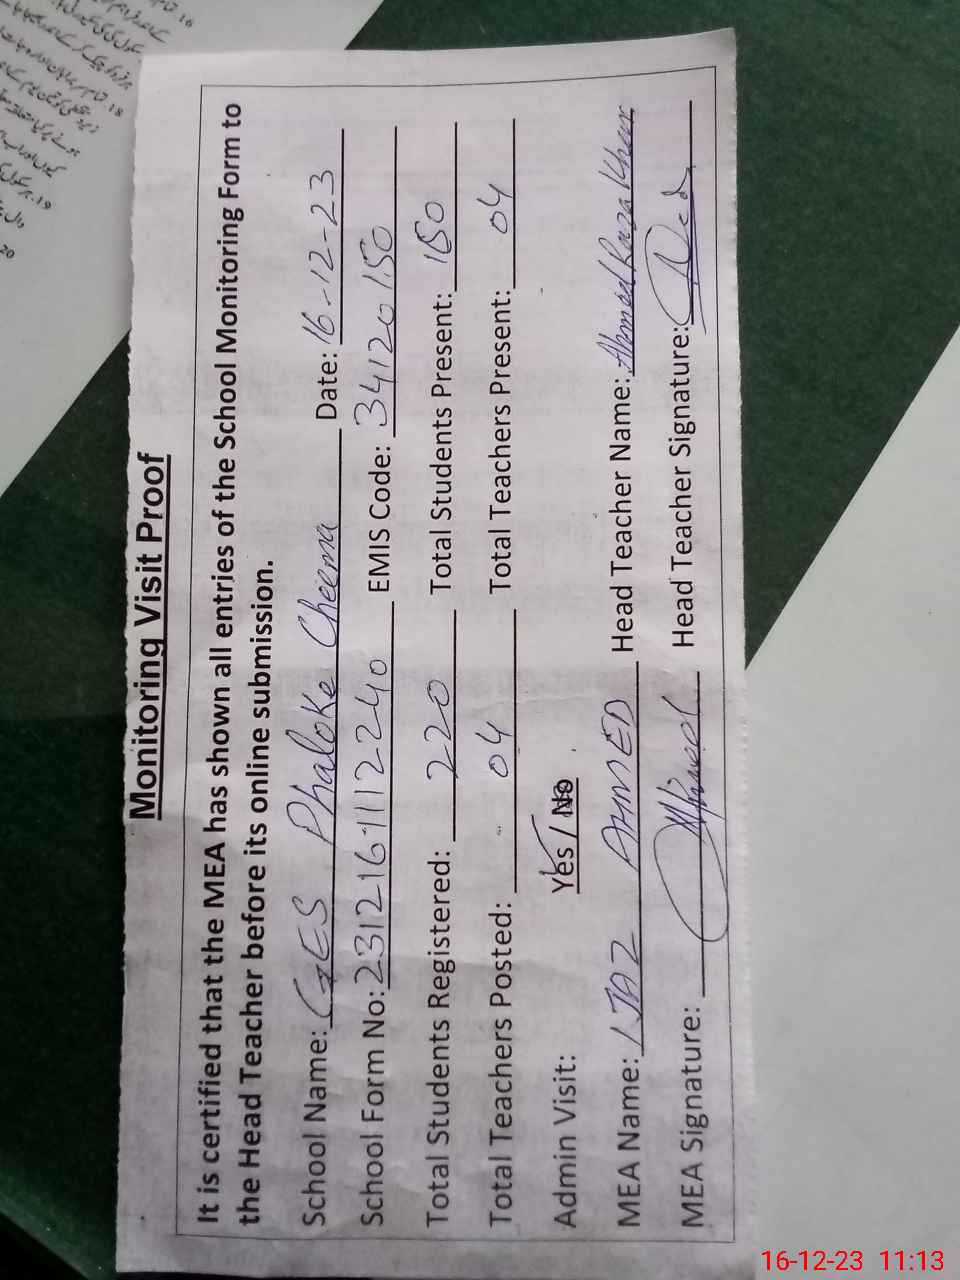 Monitoring Visit Proof
It is certified that the MEA has shown all entries of the School Monitoring Form to
the Head Teacher before its online submission.
School Name: GES Phaloke Cheema Date: 16-12-23
School Form No: 231216-11112240 EMIS Code: 34120150
Total Students Registered: 220 Total Students Present: 150
Total Teachers Posted: 04 Total Teachers Present: 04
Admin Visit: Yes / No
MEA Name: IJAZ AHMED Head Teacher Name: Ahmed Raza Khan
MEA Signature: Head Teacher Signature:
16-12-23 11:13